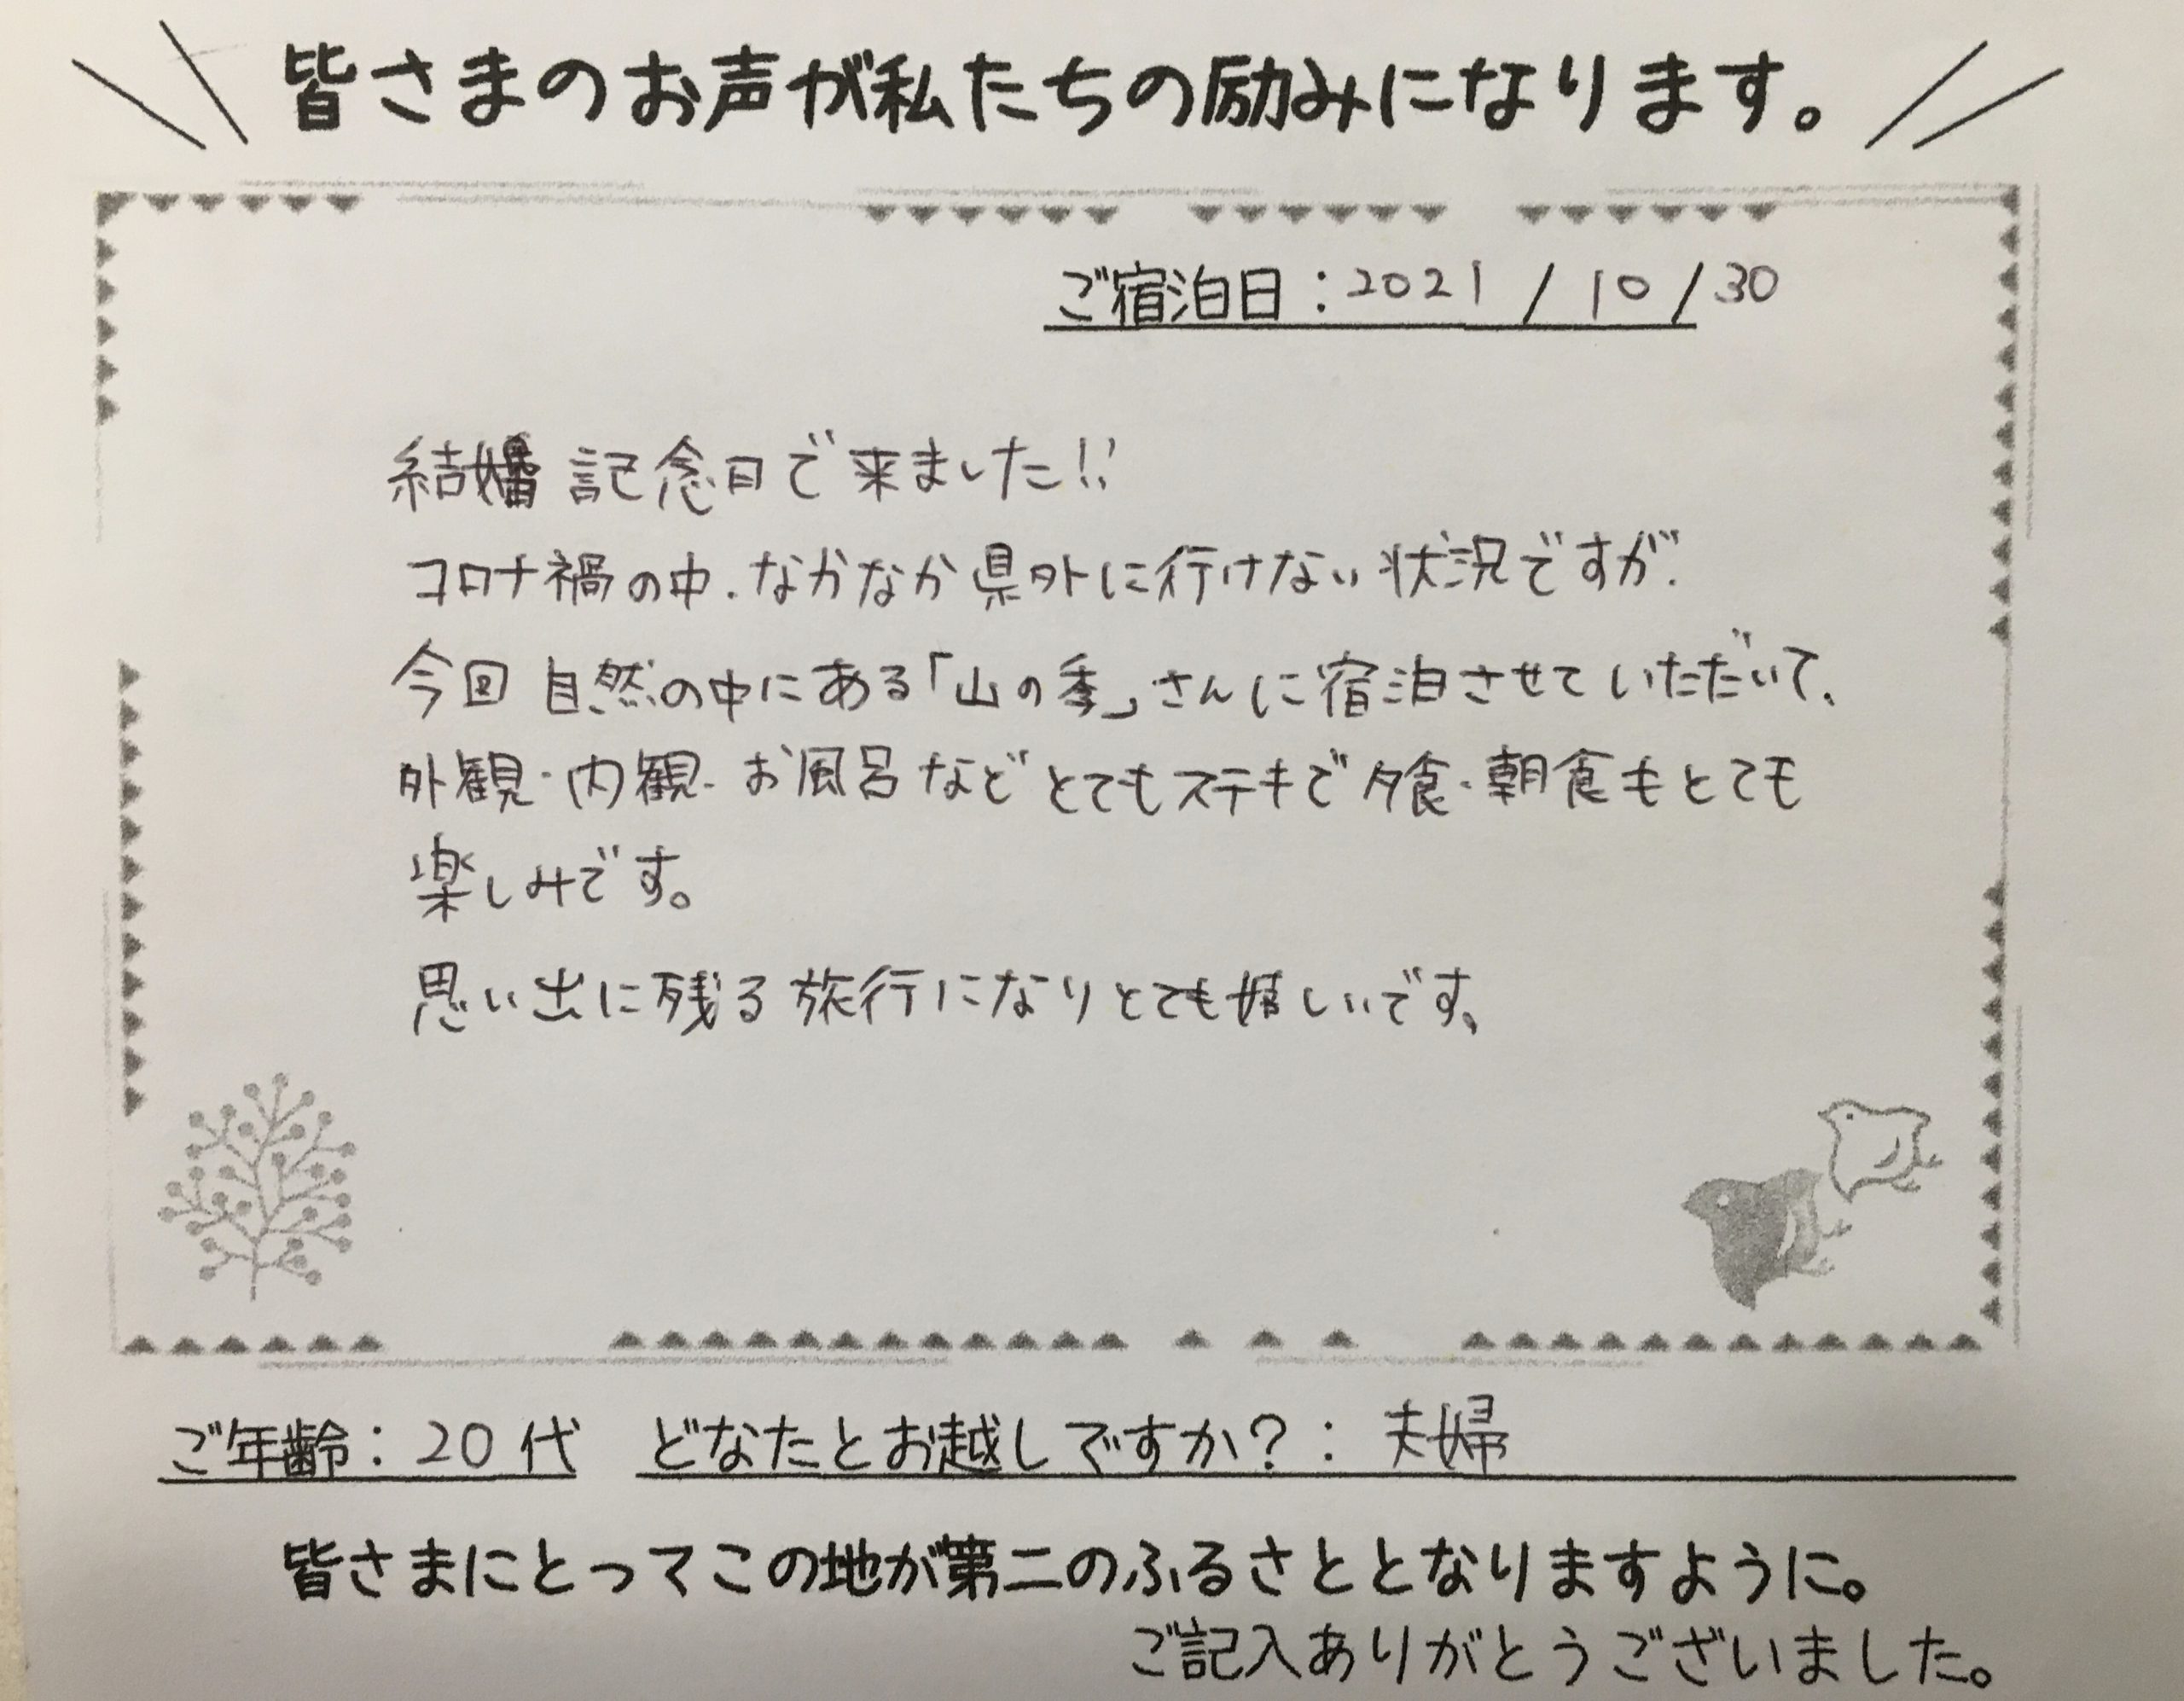 皆さまのお声が私たちの励みになります。
ご宿泊日：2021/10/30
結婚記念日で来ました!!
コロナ禍の中、なかなか県外に行けない状況ですが、
今回自然の中にある「山の季」さんに宿泊させていただいて、
外観・内観・お風呂などとてもステキで夕食・朝食もとても
楽しみです。
思い出に残る旅行になりとても嬉しいです。
ご年齢：20代 どなたとお越しですか？：夫婦
皆さまにとってこの地が第二のふるさととなりますように。
ご記入ありがとうございました。